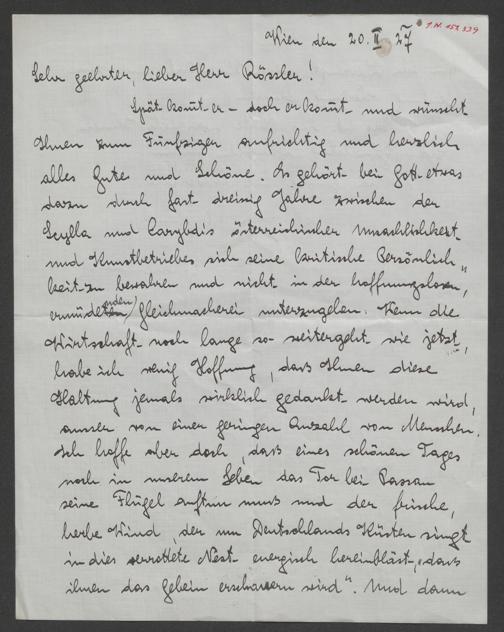 I.N. 152.939
Wien den 20. II 27
Sehr geehrter, lieber Herr Rössler!
Spät kom̅t er – doch er kom̅t – und wünscht
Ihnen zum Fünfziger aufrichtig und herzlich
alles Gute und Schöne. Es gehört bei Gott etwas
dazu durch fast dreissig Jahre zwischen der
Scylla und Carybdis österreichischer Unsachlichkeit
und Kunstbetriebes sich seine kritische Persönlich„
keit zu bewahren und nicht in der hoffnungslosen,
ermüdenden Gleichmacherei unterzugehen. Wenn die
Wirtschaft noch lange so weitergeht wie jetzt,
habe ich wenig Hoffnung, dass Ihnen diese
Haltung jemals wirklich gedankt werden wird,
ausser von einer geringen Anzahl von Menschen.
Ich hoffe aber doch, dass eines schönen Tages
noch in unserem Leben das Tor bei Passau
seine Flügel auftun muss und der frische,
herbe Wind, der um Deutschlands Küsten singt
in dies verrottete Nest energisch hereinbläst, „dass
ihnen das Gebein erschauern wird“. Und dann